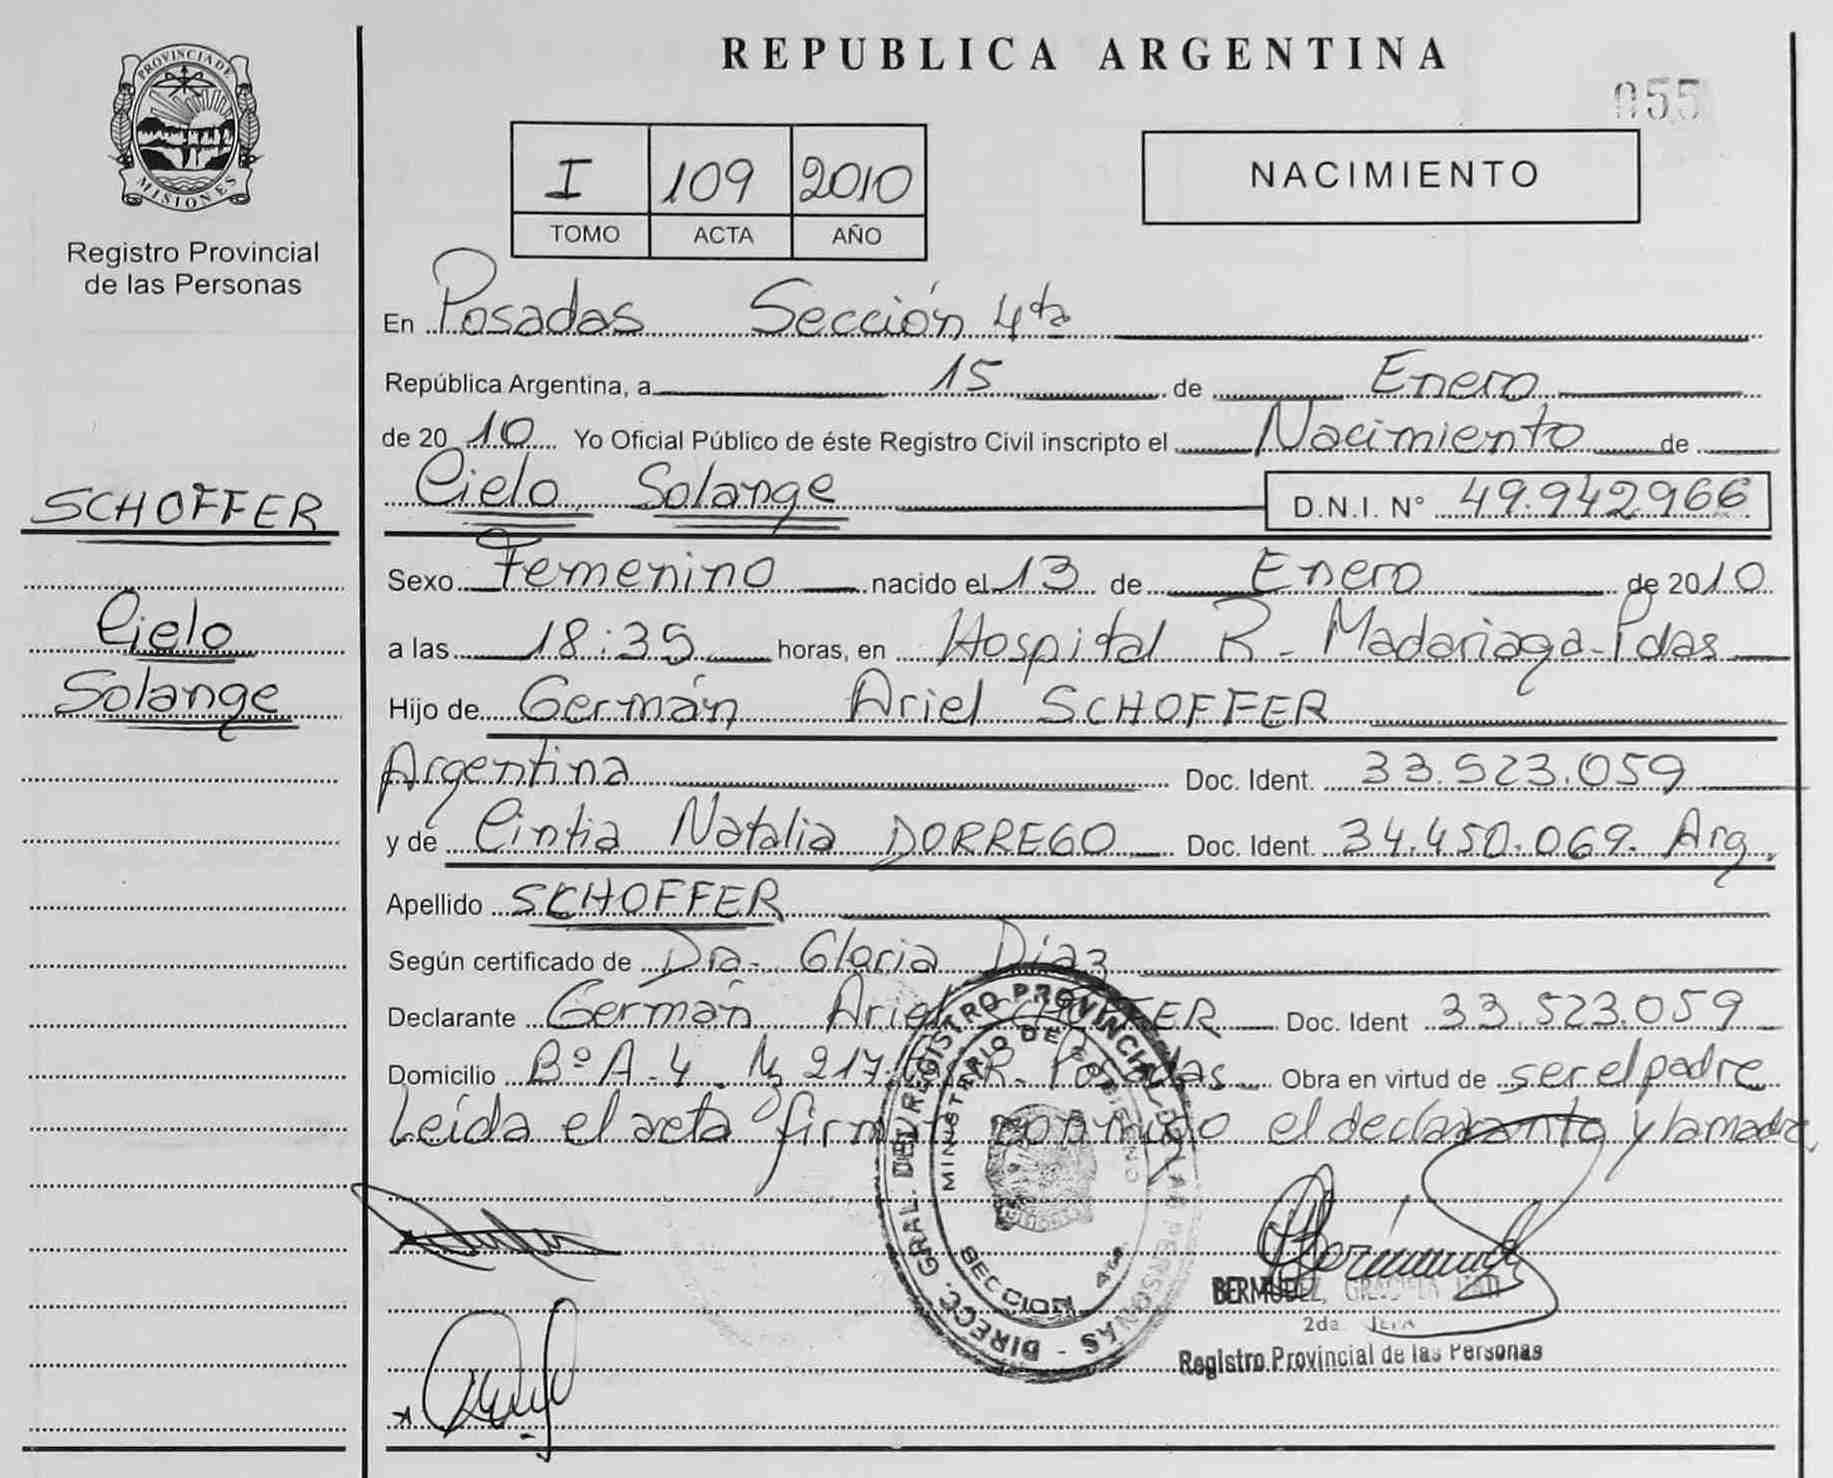 REPUBLICA ARGENTINA
055
PROVINCIA DE
MISIONES
Registro Provincial
de las Personas
I 109 2010
TOMO ACTA AÑO
NACIMIENTO
SCHOFFER
Cielo
Solange
En Posadas Sección 4ta
República Argentina, a 15 de Enero
de 2010 Yo Oficial Público de éste Registro Civil inscripto el Nacimiento de
Cielo Solange D.N.I. N° 49.942966
Sexo Femenino nacido el 13 de Enero de 2010
a las 18:35 horas, en Hospital R. Madariaga-Pdas
Hijo de Germán Ariel SCHOFFER
Argentina Doc. Ident. 33.523.059
y de Cintia Natalia DORREGO Doc. Ident. 34.450.069. Arg.
Apellido SCHOFFER
Según certificado de Dra. Gloria Díaz
Declarante Germán Ariel SCHOFFER Doc. Ident 33.523.059
Domicilio BºA-4. Mz 217. Posadas Obra en virtud de ser el padre
Leída el acta firman conmigo el declarante y la madre
DIRECC. GRAL. DEL REGISTRO PROVINCIAL DE LAS PERSONAS
MINISTERIO DE GOBIERNO
SECCION 4ta.
Bermúdez
BERMUDEZ, GRACIELA
2da JEFA
Registro Provincial de las Personas